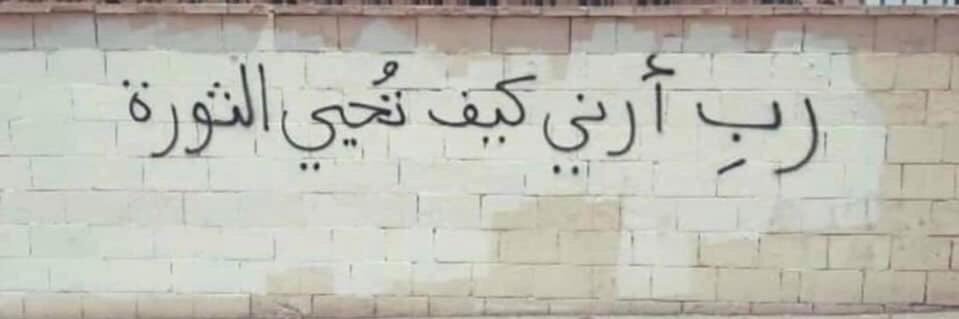 ربِ أرني كيف تُحيي الثورة